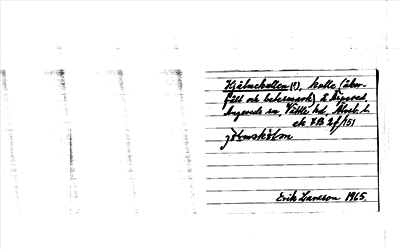 Hjälmekullen(?), kulle (åker-
fält och betesmark) å Lägered,
Angereds sn, Vättle hd, Älvsb. l.
ek 7B 2f/151
jælməkɵlən
Erik Larsson 1965.